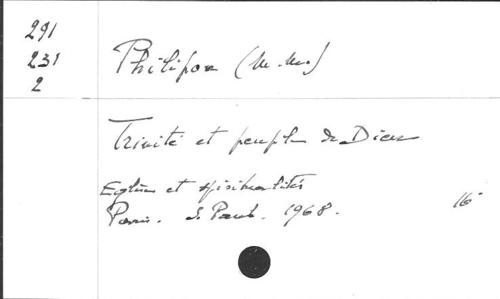 291
231
2
Philipon (M. M.)
Trinité et peuple de Dieu
Eglise et spiritualités
Paris. S. Paul. 1968. 16°